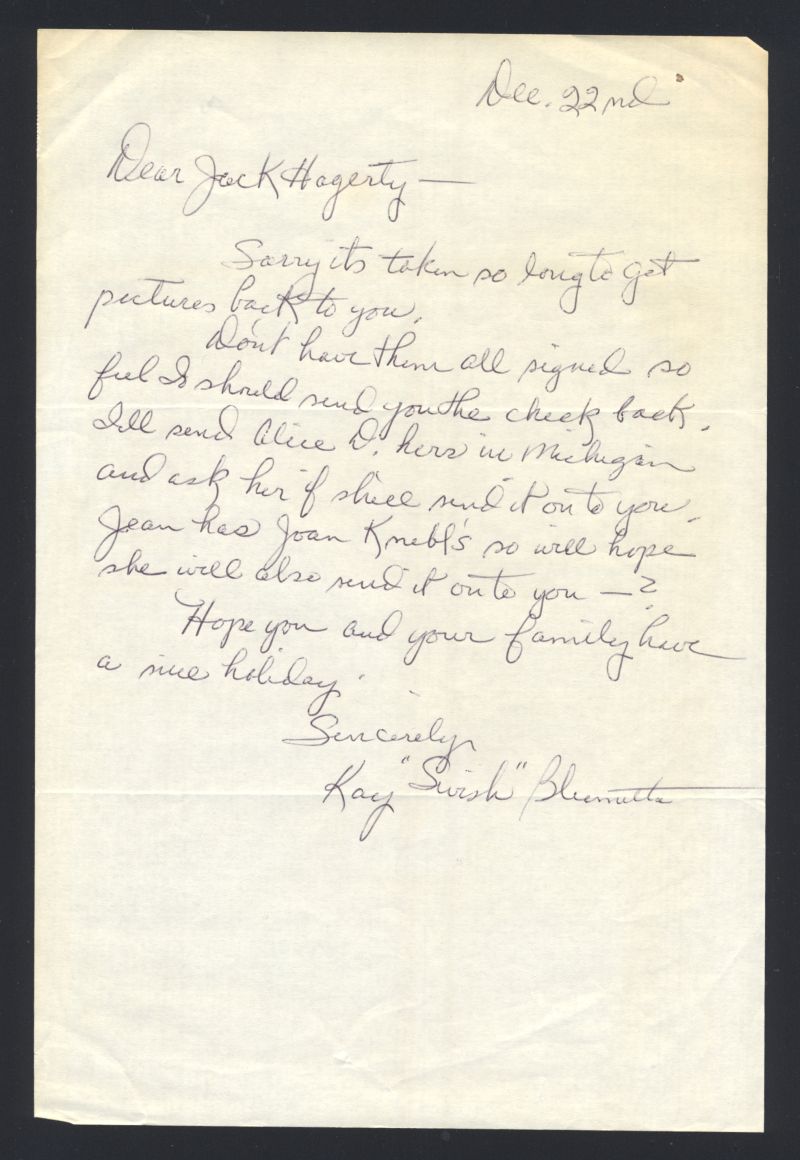 Dec. 22nd
Dear Jack Hagerty —
Sorry its taken so long to get
pictures back to you.
Don't have them all signed so
feel I should send you the check back.
I'll send Alice D. hers in Michigan
and ask her if she'll send it on to you.
Jean has Joan Knebl's so will hope
she will also send it on to you — ?
Hope you and your family have
a nice holiday.
Sincerely,
Kay "Swish" Blumetta